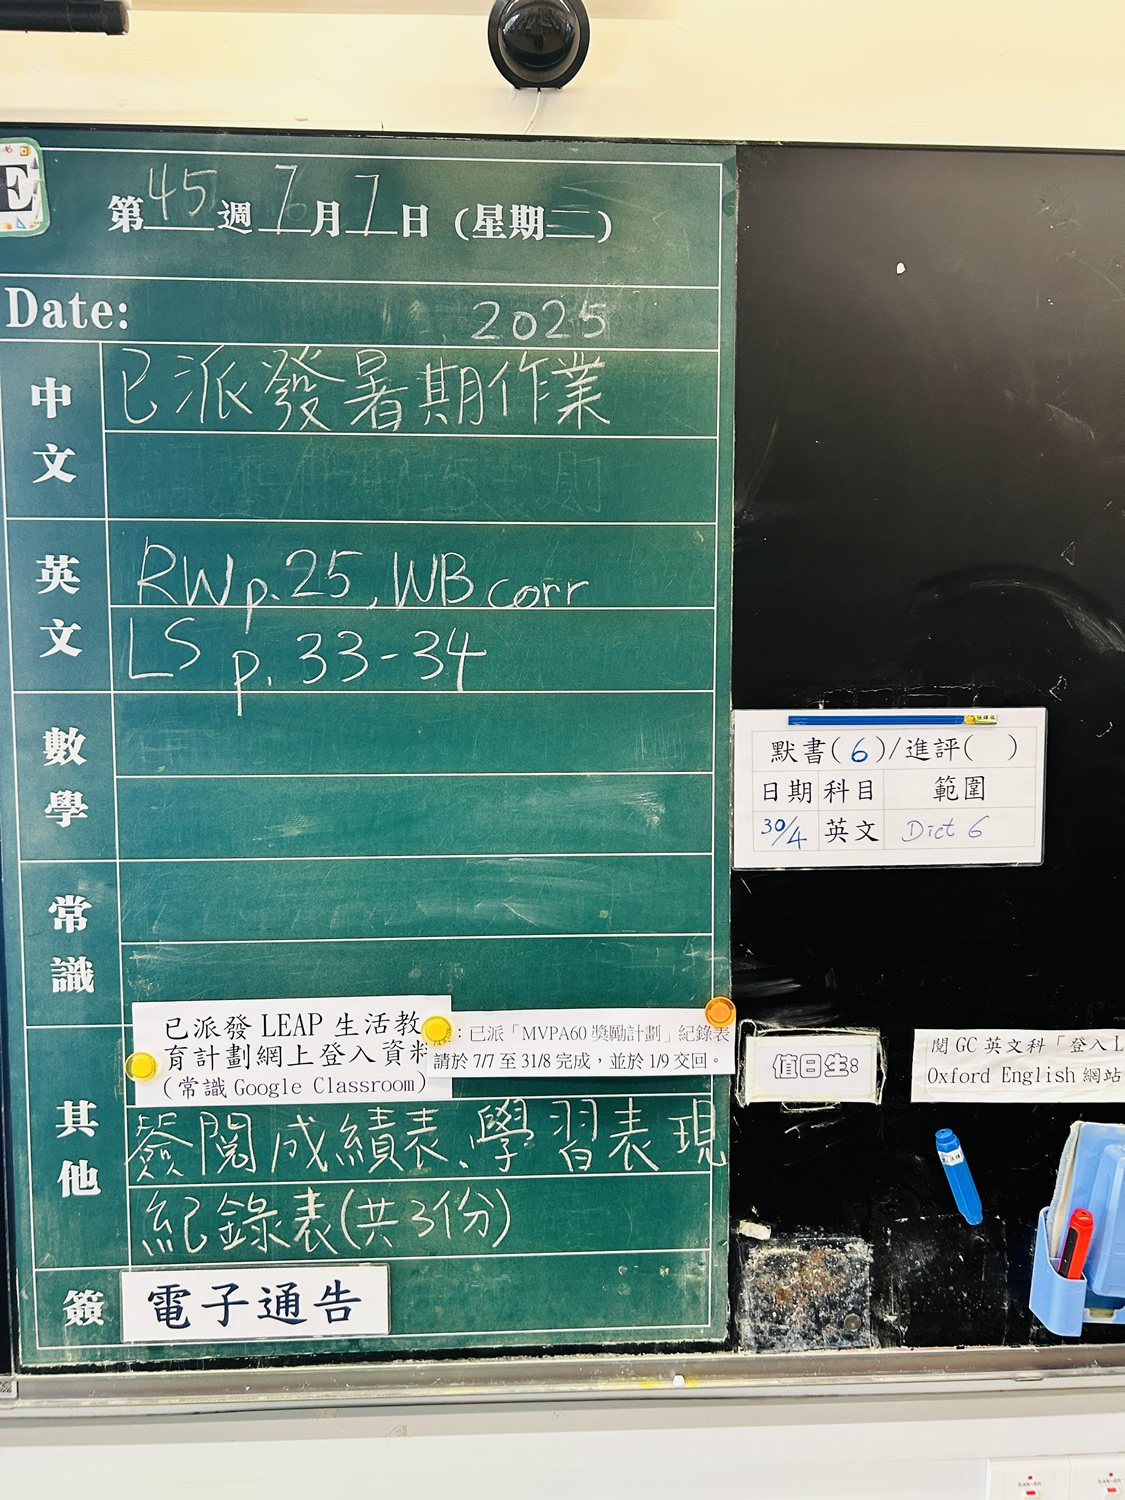 E
第45週7月7日(星期二)
Date: 2025
中文
已派發暑期作業
英文
RW p.25, WB corr
LS p.33-34
數學
常識
其他
已派發 LEAP 生活教
育計劃網上登入資料
(常識 Google Classroom)
：已派「MVPA60 獎勵計劃」紀錄表
請於 7/7 至 31/8 完成，並於 1/9 交回。
簽閱成績表、學習表現
紀錄表(共3份)
簽
電子通告
默書(6)/進評( )
日期 科目 範圍
30/4 英文 Dict 6
值日生:
閱 GC 英文科「登入 L
Oxford English 網站